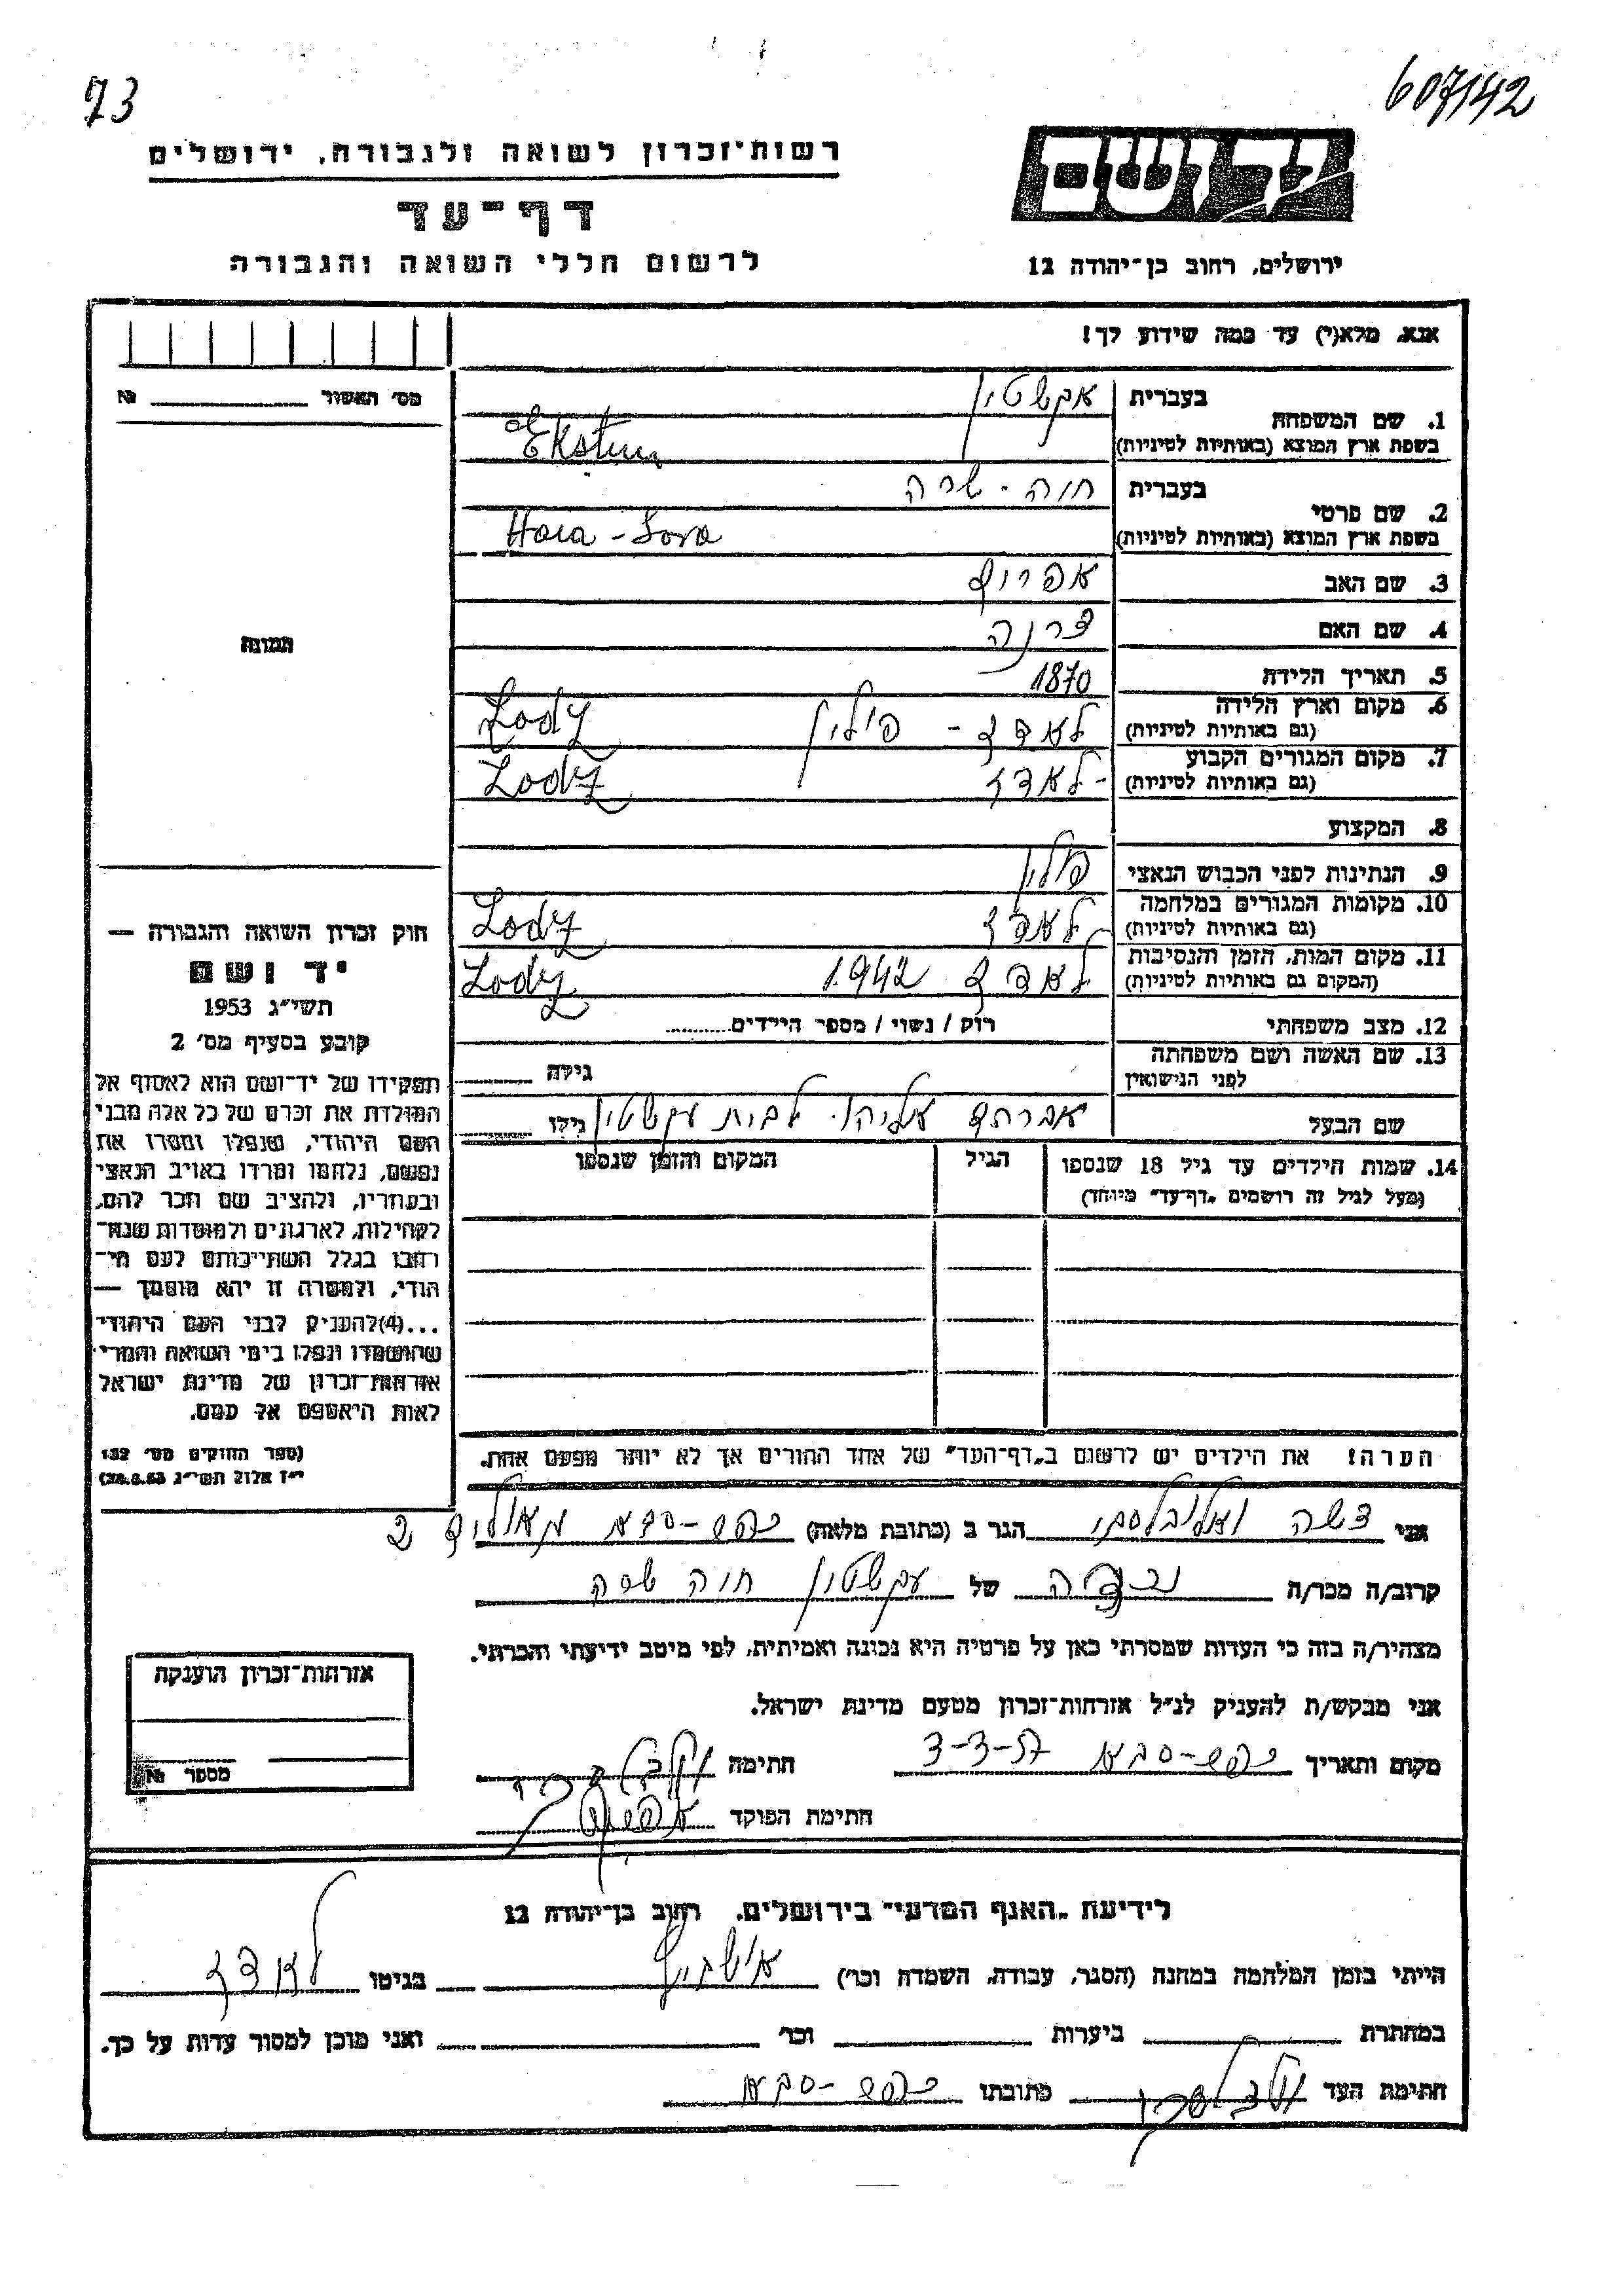 73
607142
רשות־זכרון לשואה ולגבורה, ירושלים
דף־עד
לרשום חללי השואה והגבורה
יד ושם
ירושלים, רחוב בן־יהודה 12
אנא, מלא(י) עד כמה שידוע לך!
מס׳ האשור № 
1. שם המשפחה בעברית אקשטין
בשפת ארץ המוצא (באותיות לטיניות) Ekstein
2. שם פרטי בעברית חוה - שרה
בשפת ארץ המוצא (באותיות לטיניות) Haia - Sora
3. שם האב אפרים
4. שם האם
5. תאריך הלידה 1870
6. מקום וארץ הלידה (גם באותיות לטיניות) לאדז - פולין Lodz
7. מקום המגורים הקבוע (גם באותיות לטיניות) לאדז Lodz
8. המקצוע
9. הנתינות לפני הכבוש הנאצי פולין
10. מקומות המגורים במלחמה (גם באותיות לטיניות) לאדז Lodz
11. מקום המות, הזמן והנסיבות (המקום גם באותיות לטיניות) לאדז 1942 Lodz
12. מצב משפחתי רוק / נשוי / מספר הילדים
13. שם האשה ושם משפחתה לפני הנישואין גילה
שם הבעל אברהם אליהו לבית עקשטין גילו
14. שמות הילדים עד גיל 18 שנספו
(מעל לגיל זה רושמים „דף־עד״ מיוחד)
הגיל
המקום והזמן שנספו
תמונה
חוק זכרון השואה והגבורה —
יד ושם
תשי״ג 1953
קובע בסעיף מס׳ 2
תפקידו של יד־ושם הוא לאסוף אל
המולדת את זכרם של כל אלה מבני
העם היהודי, שנפלו ומסרו את
נפשם, נלחמו ומרדו באויב הנאצי
ובעוזריו, ולהציב שם וזכר להם,
לקהילות, לארגונים ולמוסדות שנח־
רבו בגלל השתייכותם לעם הי־
הודי, ולמטרה זו יהא מוסמך —
...(4)להעניק לבני העם היהודי
שהושמדו ונפלו בימי השואה והמרי
אזרחות־זכרון של מדינת ישראל
לאות היאספם אל עמם.
(ספר החוקים מס׳ 132
י״ז אלול תשי״ג 28.8.53)
הערה! את הילדים יש לרשום ב„דף־העד״ של אחד ההורים אך לא יותר מפעם אחת.
אני הגר ב (כתובת מלאה) כפר-סבא
קרוב/ה מכר/ה נכדה של עקשטין חוה שרה
מצהיר/ה בזה כי העדות שמסרתי כאן על פרטיה היא נכונה ואמיתית, לפי מיטב ידיעתי והכרתי.
אני מבקש/ת להעניק לנ״ל אזרחות־זכרון מטעם מדינת ישראל.
מקום ותאריך כפר-סבא 3-3-57 חתימה
חתימת הפוקד
אזרחות־זכרון הוענקה
מספר №
לידיעת „האגף המדעי״ בירושלים, רחוב בן־יהודה 12
הייתי בזמן המלחמה במחנה (הסגר, עבודה, השמדה וכו׳) אושביץ בגיטו לאדז
במחתרת ביערות וכו׳ ואני מוכן למסור עדות על כך.
חתימת העד כתובתו כפר-סבא